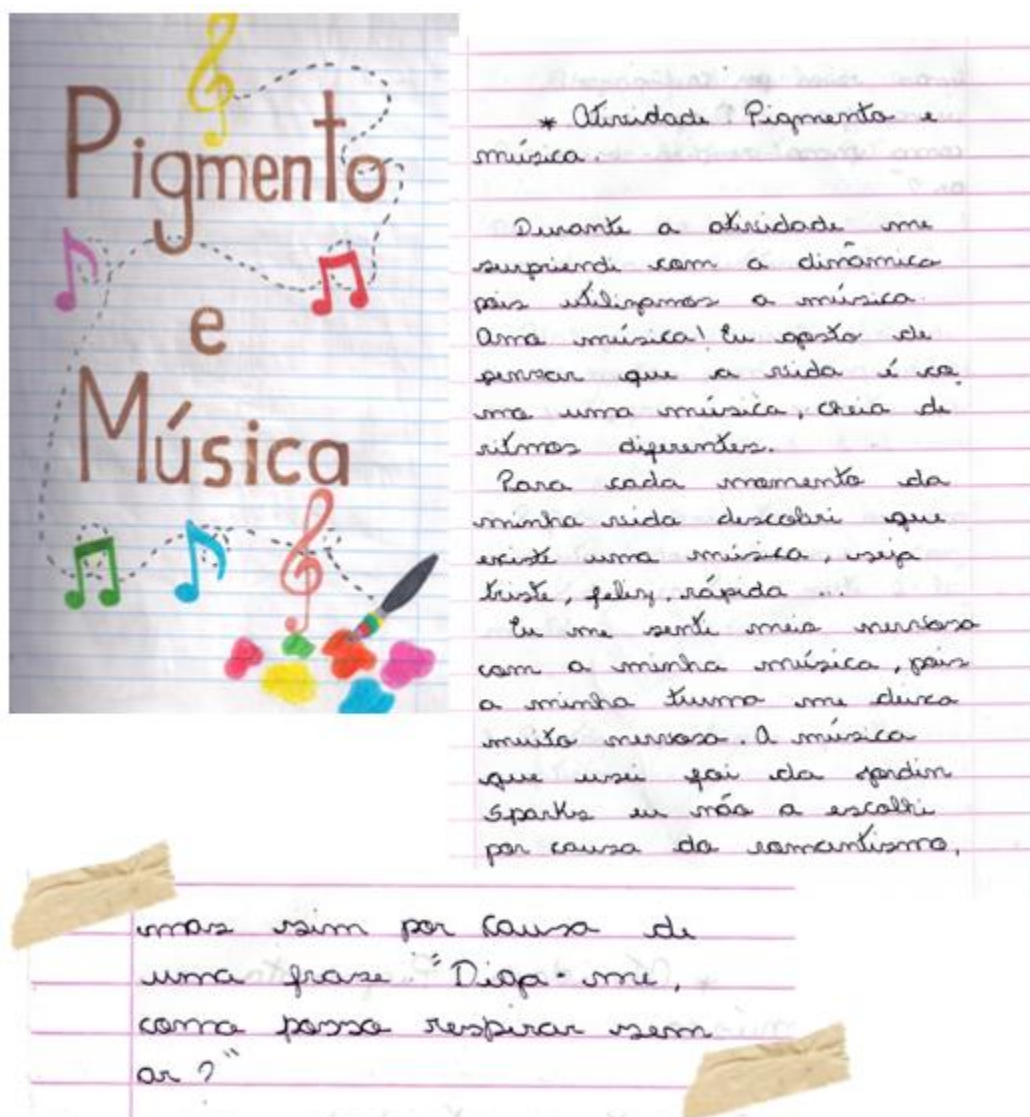 Pigmento
e
Música
* Atividade: Pigmento e
música.
Durante a atividade me
surpriendi com a dinâmica
pois utilizamos a música.
Amo música! Eu gosto de
pensar que a vida é co
mo uma música, cheia de
ritmos diferentes.
Para cada momento da
minha vida descobri que
existe uma música, seja
triste, feliz, rápida ...
Eu me senti meio nervoso
com a minha música, pois
a minha turma me deixa
muito nervoso. A música
que usei foi da jordin
Sparks eu não a escolhi
por causa do romantismo,
mas sim por causa de
uma frase "Diga-me,
como posso respirar sem
ar?"